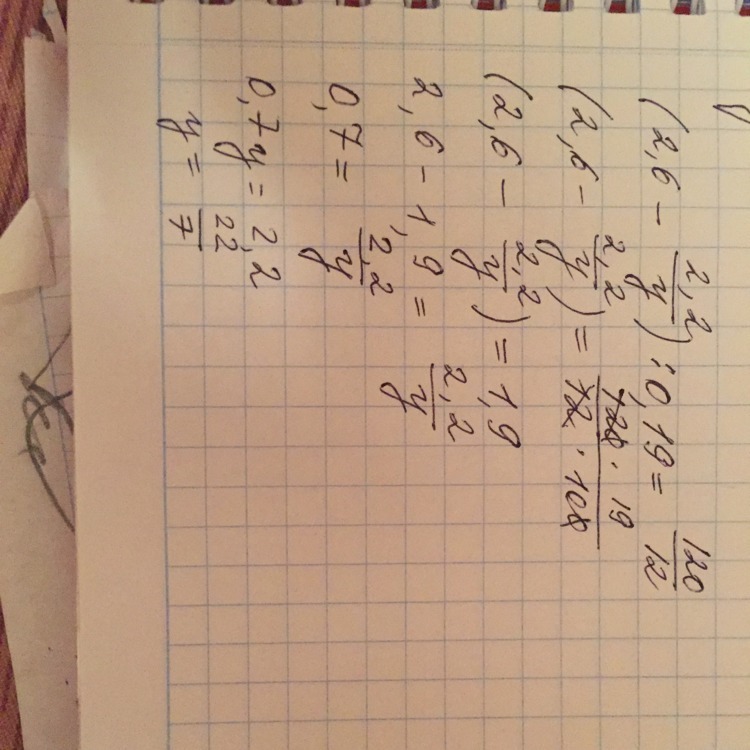 (2,6 - 2,2/y) : 0,19 = 120/12
(2,6 - 2,2/y) = 120 · 19/12 · 100
(2,6 - 2,2/y) = 1,9
2,6 - 1,9 = 2,2/y
0,7 = 2,2/y
0,7y = 2,2
y = 22/7